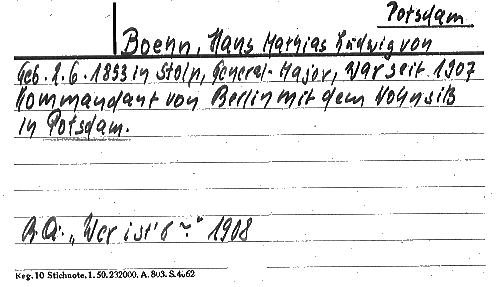 Potsdam
Boehn, Hans Mathias Ludwig von
Geb. 2.6.1853 in Stolp, General-Major, war seit 1907
Kommandant von Berlin mit dem Wohnsitz
in Potsdam.
B.A: „Wer ist's?" 1908
Reg. 10 Stichnote. 1. 50. 232000. A. 803. S. 4662